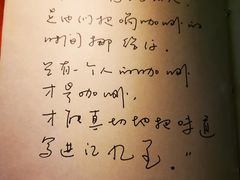 是他们把喝咖啡的
时间挪给你.
只有一个人的咖啡
才是咖啡.
才能真切地把味道
写进记忆里."